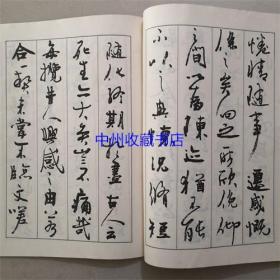 惓情随事遷感慨
係之矣向之所欣俛仰
之間以為陳迹猶不能
不以之興懷況脩短
随化終期於盡古人云
死生亦大矣豈不痛哉
每攬昔人興感之由若
合一契未嘗不臨文嗟
中州收藏书店